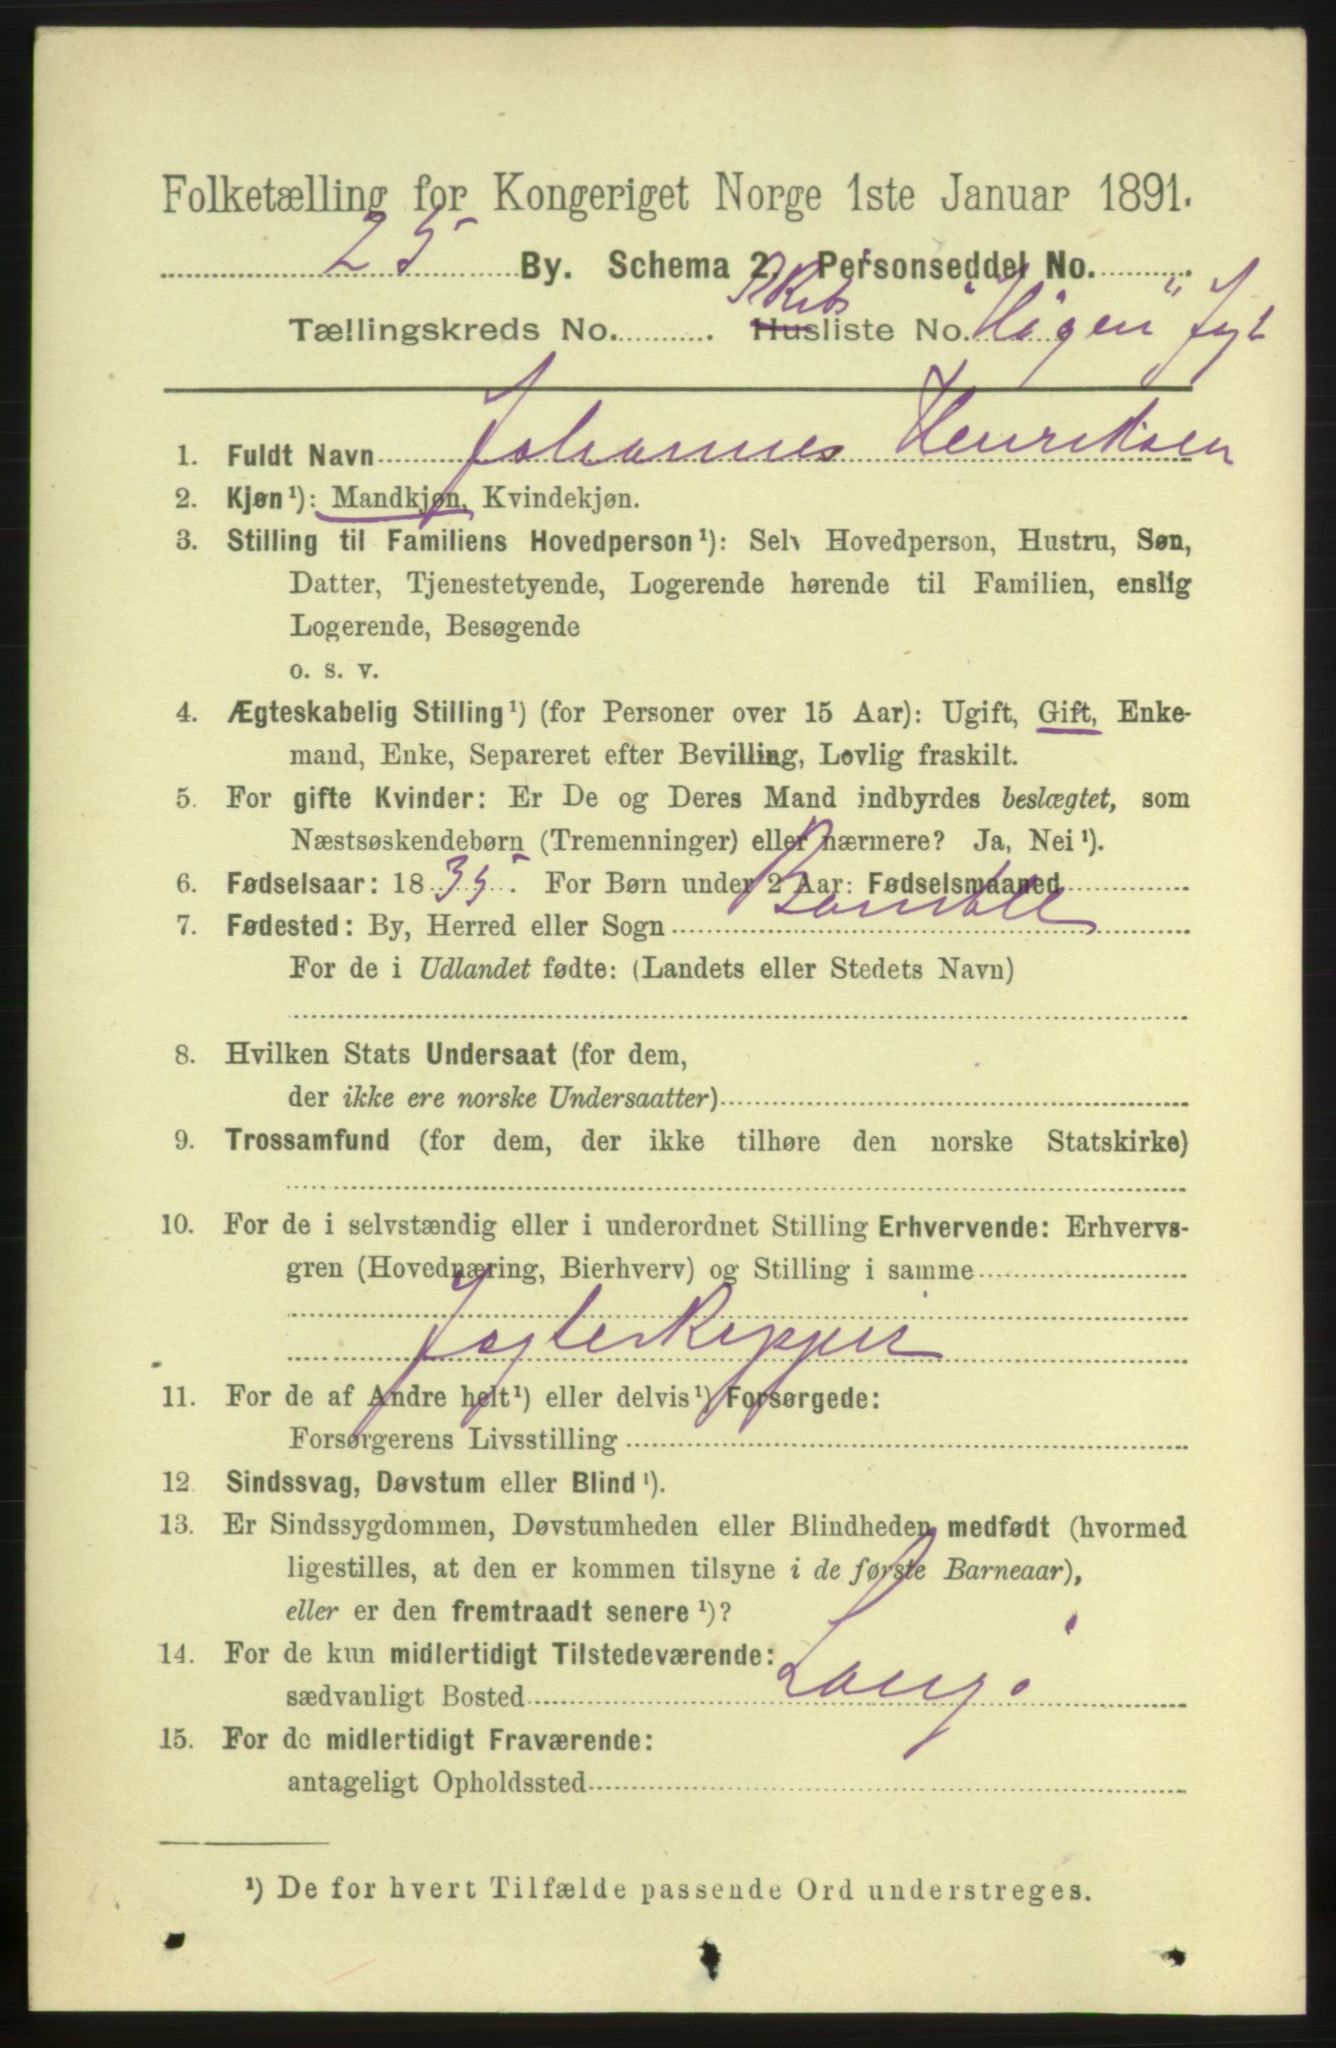 Folketælling for Kongeriget Norge 1ste Januar 1891.
25 By. Schema 2. Personseddel No.
Tællingskreds No. Skibs Husliste No. "Högen" Jagt
1. Fuldt Navn Johannes Henriksen
2. Kjøn¹): Mandkjøn, Kvindekjøn.
3. Stilling til Familiens Hovedperson¹): Selv Hovedperson, Hustru, Søn,
Datter, Tjenestetyende, Logerende hørende til Familien, enslig
Logerende, Besøgende
o. s. v.
4. Ægteskabelig Stilling¹) (for Personer over 15 Aar): Ugift, Gift, Enke-
mand, Enke, Separeret efter Bevilling, Lovlig fraskilt.
5. For gifte Kvinder: Er De og Deres Mand indbyrdes beslægtet, som
Næstsøskendebørn (Tremenninger) eller nærmere? Ja, Nei¹).
6. Fødselsaar: 1835. For Børn under 2 Aar: Fødselsmaaned
7. Fødested: By, Herred eller Sogn Bamble
For de i Udlandet fødte: (Landets eller Stedets Navn)
8. Hvilken Stats Undersaat (for dem,
der ikke ere norske Undersaatter)
9. Trossamfund (for dem, der ikke tilhøre den norske Statskirke)
10. For de i selvstændig eller i underordnet Stilling Erhvervende: Erhvervs-
gren (Hovednæring, Bierhverv) og Stilling i samme
Jagteskipper
11. For de af Andre helt¹) eller delvis¹) Forsørgede:
Forsørgerens Livsstilling
12. Sindssvag, Døvstum eller Blind¹).
13. Er Sindssygdommen, Døvstumheden eller Blindheden medfødt (hvormed
ligestilles, at den er kommen tilsyne i de første Barneaar),
eller er den fremtraadt senere¹)?
14. For de kun midlertidigt Tilstedeværende:
sædvanligt Bosted Langö
15. For de midlertidigt Fraværende:
antageligt Opholdssted
¹) De for hvert Tilfælde passende Ord understreges.